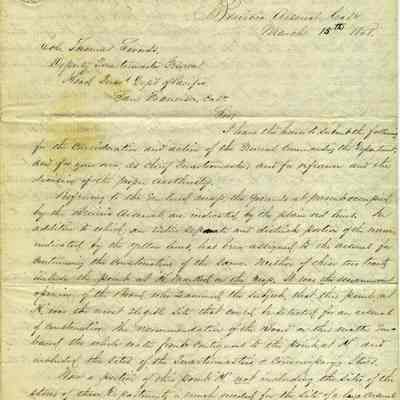 Benicia Arsenal, Cal.
March 15th
Col. Thomas Swords,
Deputy Quartermaster General
Head Qrs. Dept. of Pacific
San Francisco, Cal.
Sir,
I have the honor to submit the following
for the consideration and action of the General Commanding the Department,
and for your own as Chief Quartermaster, and for reference and the
decision of the proper authority.
Referring to the enclosed map the grounds at present occupied
by the Benicia Arsenal are indicated by the plain red line. In
addition to which, an entire separate and distinct portion of the
indicated by the yellow line, has been assigned to the arsenal for
continuing the construction of the same. Neither of these two tracts
include the point at K marked on the map. It was the unanimous
opinion of the Board who examined the subject, that this point at
K was the most eligible site that could be selected for an arsenal
of construction. The recommendation of the Board on this matter
the whole water front contiguous to the point at K and
included the sites of the Quartermaster & Commissary Stores.
Now a portion of this point K not including the sites of the
stores of these Departments is much needed for the site of a large arsenal